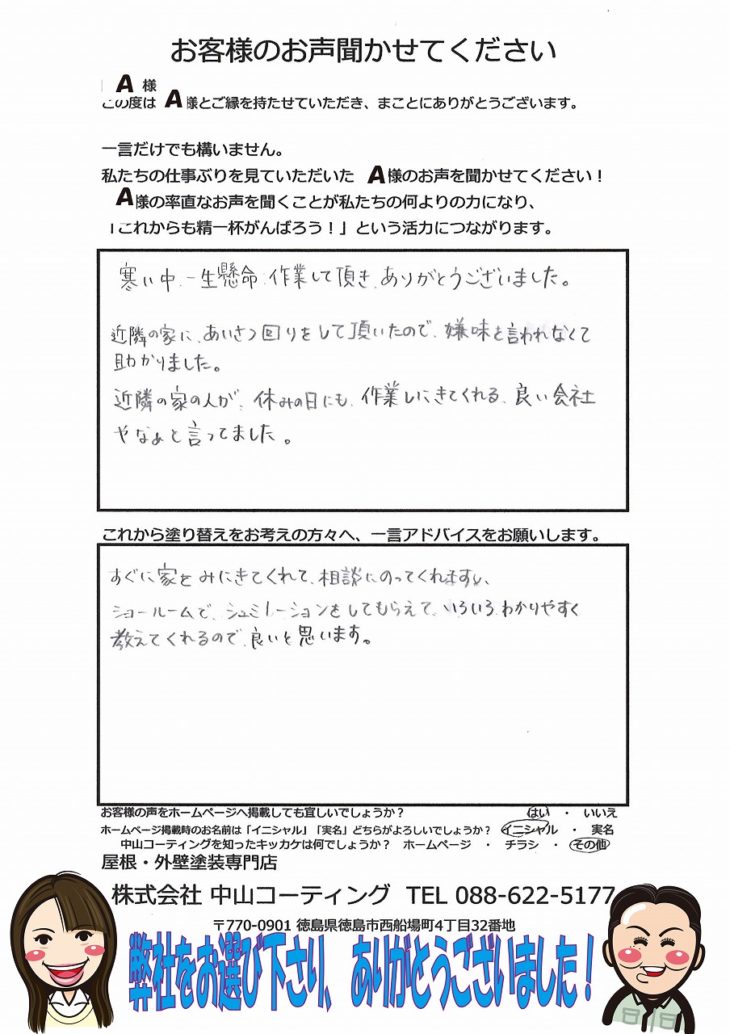 お客様のお声聞かせてください
A 様
この度は A 様とご縁を持たせていただき、まことにありがとうございます。
一言だけでも構いません。
私たちの仕事ぶりを見ていただいた A 様のお声を聞かせてください！
A 様の率直なお声を聞くことが私たちの何よりの力になり、
「これからも精一杯がんばろう！」という活力につながります。
寒い中、一生懸命、作業して頂き、ありがとうございました。
近隣の家に、あいさつ回りをして頂いたので、嫌味を言われなくて
助かりました。
近隣の家の人が、休みの日にも、作業しにきてくれる、良い会社
やなぁと言ってました。
これから塗り替えをお考えの方々へ、一言アドバイスをお願いします。
すぐに家をみにきてくれて、相談にのってくれますし、
ショールームで、シュミレーションをしてもらえて、いろいろ、わかりやすく
教えてくれるので、良いと思います。
お客様の声をホームページへ掲載しても宜しいでしょうか？ はい ・ いいえ
ホームページ掲載時のお名前は「イニシャル」「実名」どちらがよろしいでしょうか？ イニシャル ・ 実名
中山コーティングを知ったキッカケは何でしょうか？ ホームページ ・ チラシ ・ その他
屋根・外壁塗装専門店
株式会社 中山コーティング TEL 088-622-5177
〒770-0901 徳島県徳島市西船場町4丁目32番地
弊社をお選び下さり、ありがとうございました！